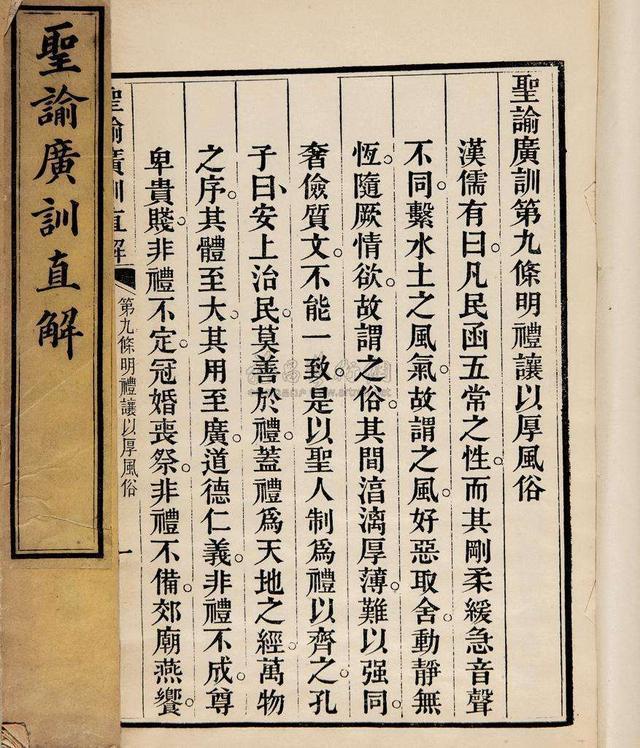 聖諭廣訓直解
聖諭廣訓第九條明禮讓以厚風俗
漢儒有曰凡民函五常之性而其剛柔緩急音聲
不同繫水土之風氣故謂之風好惡取舍動靜無
恆隨厥情欲故謂之俗其間淳漓厚薄難以强同
奢儉質文不能一致是以聖人制為禮以齊之孔
子曰安上治民莫善於禮蓋禮為天地之經萬物
之序其體至大其用至廣道德仁義非禮不成尊
卑貴賤非禮不定冠婚喪祭非禮不備郊廟燕饗
聖諭廣訓直解
第九條明禮讓以厚風俗
一